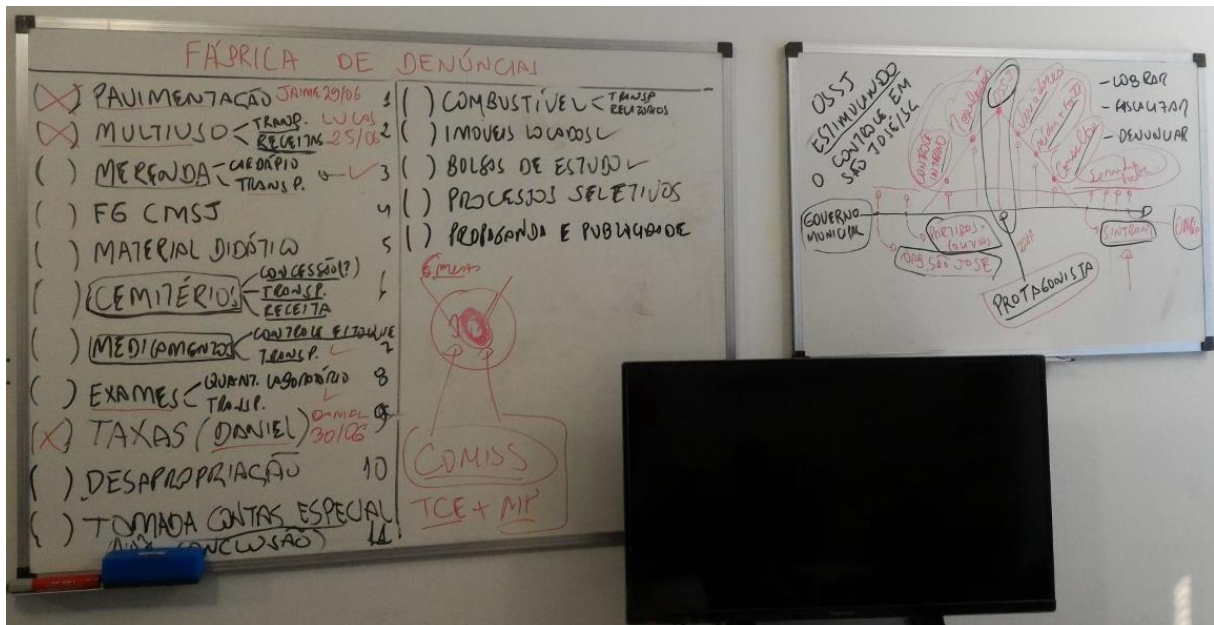 FÁBRICA DE DENÚNCIAS
(X) PAVIMENTAÇÃO JAIME 29/06 1
(X) MULTIUSO < TRANSP. LUCAS
RECEITAS 25/06 2
( ) MERENDA - CARDÁPIO
TRANSP. 3
( ) FG CMSJ 4
( ) MATERIAL DIDÁTICO 5
( ) CEMITÉRIOS CONCESSÃO(?)
TRANSP.
RECEITA
( ) MEDICAMENTOS CONTROLE ESTOQUE
TRANSP. 7
( ) EXAMES QUANT. LABORATÓRIO 8
TRANSP.
(X) TAXAS (DANIEL) DANIEL 9
30/06
( ) DESAPROPRIAÇÃO 10
( ) TOMADA CONTAS ESPECIAL
CONCLUSÃO) 11
( ) COMBUSTÍVEL < TRANSP
RELATÓRIOS
( ) IMÓVEIS LOCADOS
( ) BOLSAS DE ESTUDO
( ) PROCESSOS SELETIVOS
( ) PROPAGANDA E PUBLICIDADE
6 meses
COMISS
TCE + MP
OSSJ
ESTIMULANDO
O CONTROLE EM
SÃO JOSÉ/SC
CONTROLE
INTERNO
OSSJ
Vereadores
- COBRAR
- FISCALIZAR
- DENUNCIAR
GOVERNO
MUNICIPAL
PARTIDOS
OAB SÃO JOSÉ
SINTRAM
PROTAGONISTA